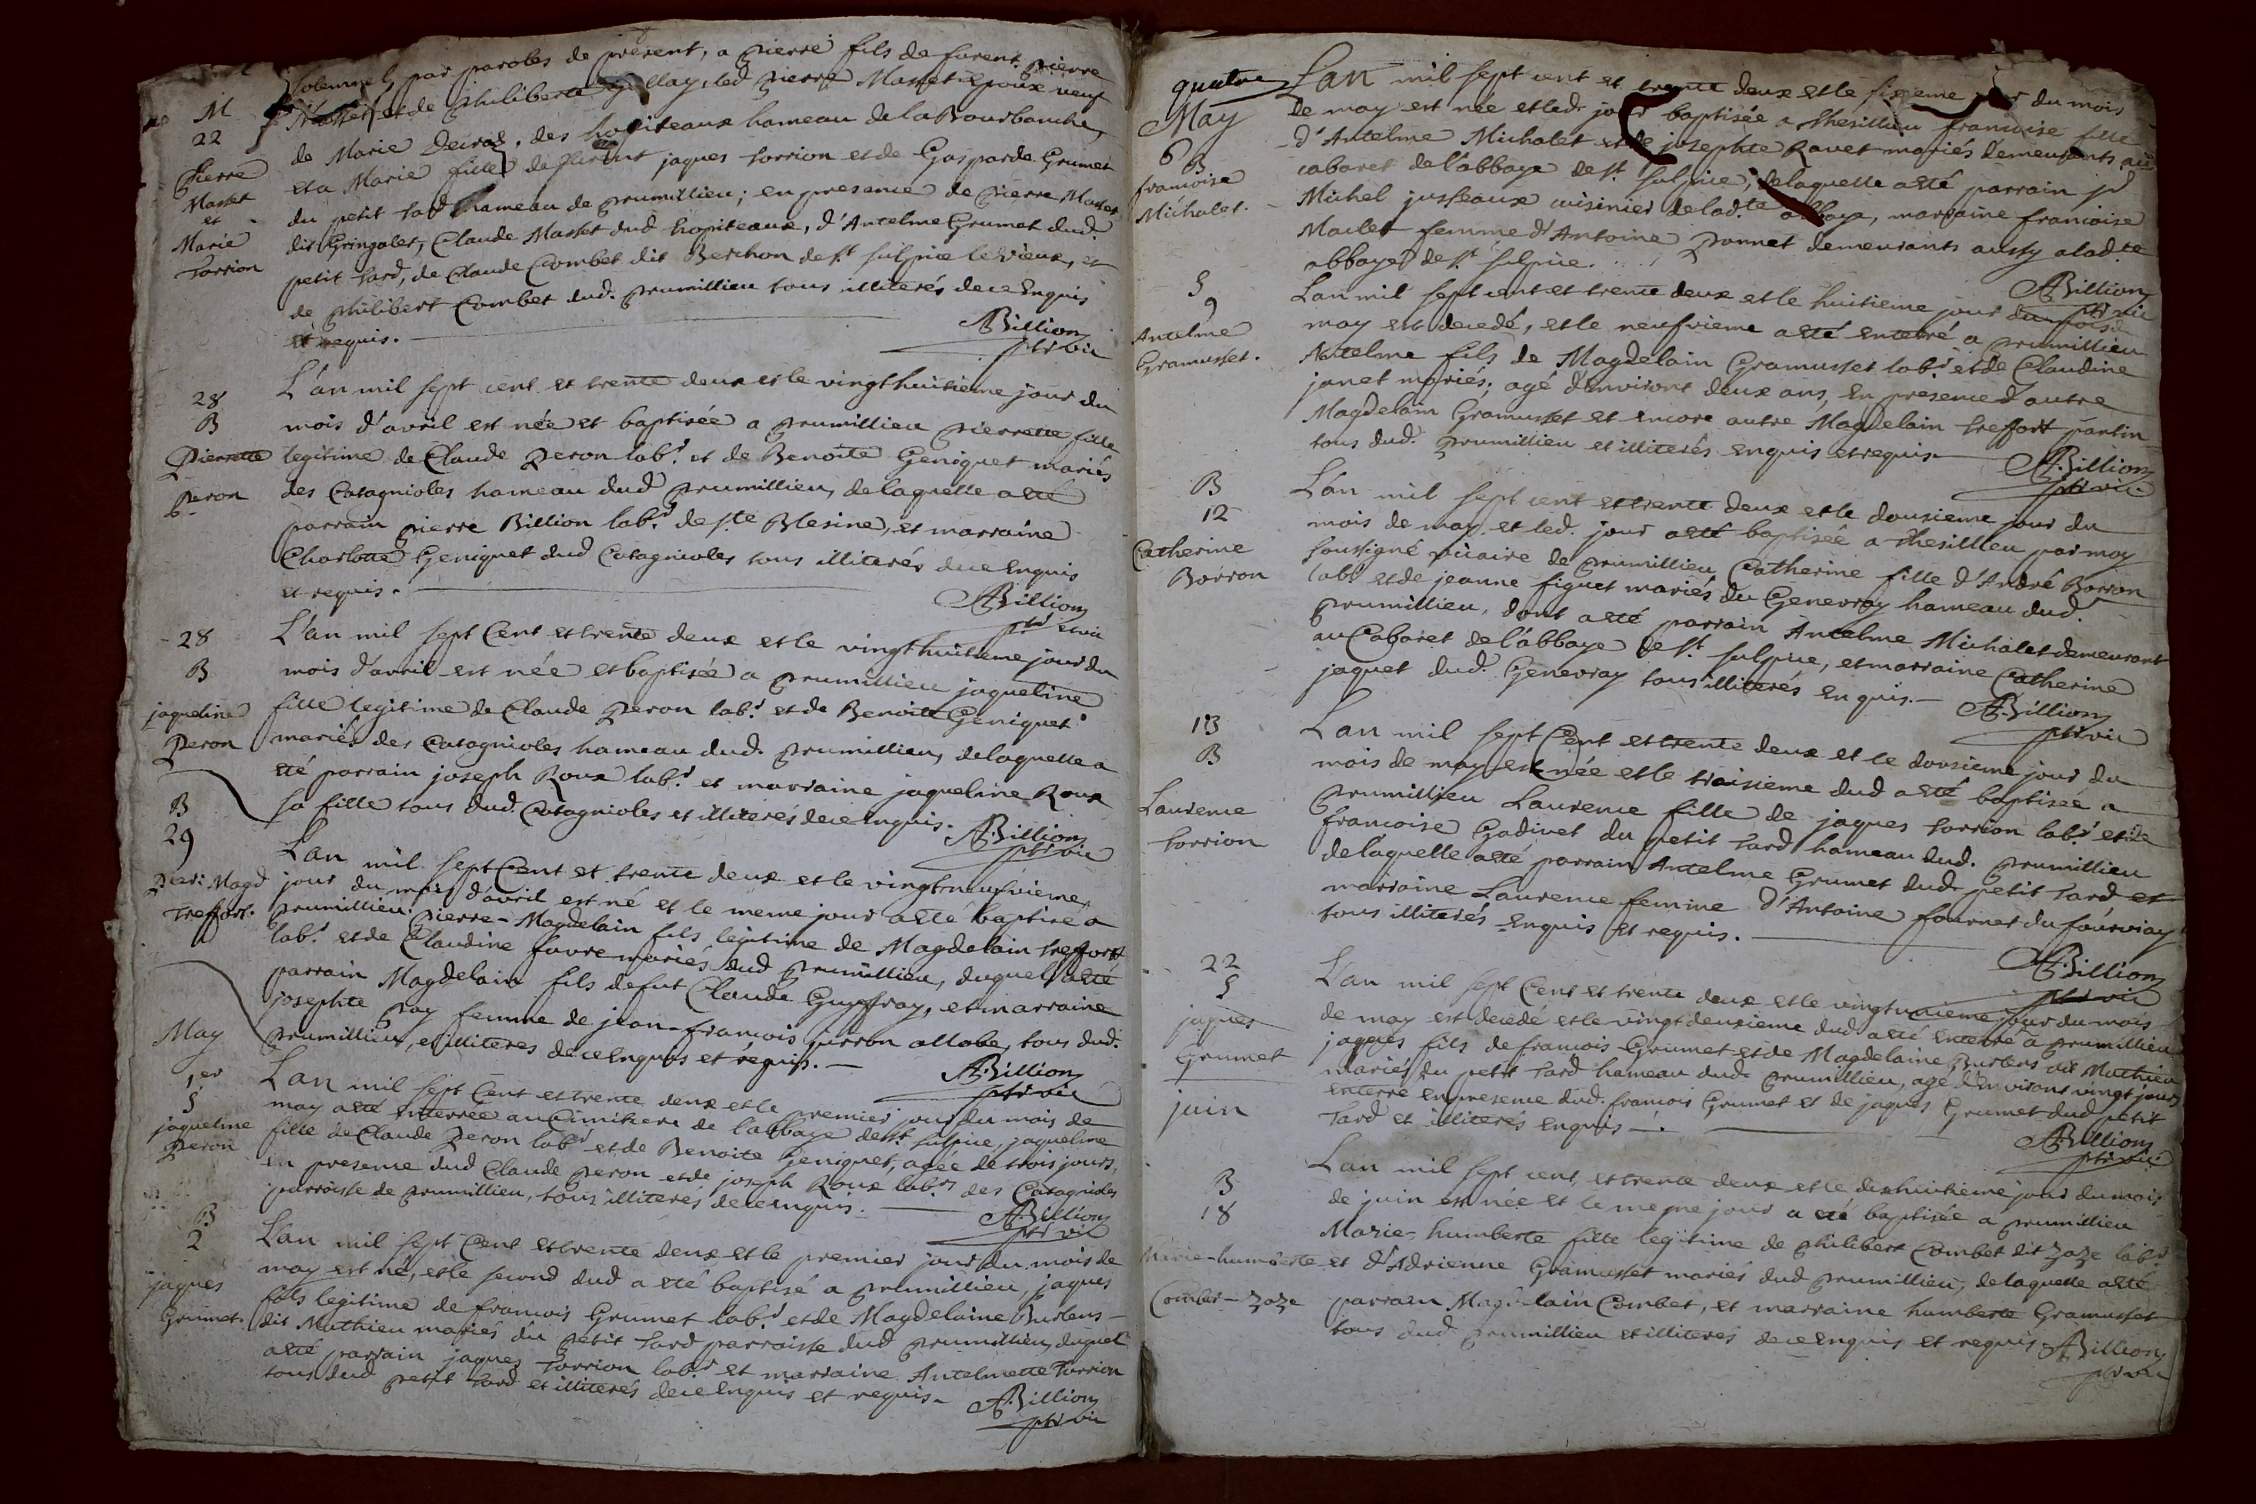 solemnels par paroles de present, a pierre fils de furent pierre
M
Masset et de philiberte led pierre Masset Epoux veuf
22
de Marie des hopiteaux hameau de la Bourbanche,
Pierre
et a Marie fille de furent jaques torrion et de Gasparde Grumet
Masset
et
du petit tard hameau de prumillieu; en presence de Pierre Masset
Marie
dit Gringalet, Claude Masset dud hopiteaux, d'Antelme Grumet dud.
torrion
petit tard, de Claude Combet dit Berchon de st sulpice le vieux, et
de philibert Combet dud. prumillieu tous illiterés de ce Enquis
et requis.
ABillion
ptre vic
28
L'an mil sept cent et trente deux et le vingt huitieme jour du
B
mois d'avril est née et baptisée a prumillieu pierrette fille
Pierrette
legitime de Claude peron labr. et de Benoite Geniquet mariés
peron
des Catagnioles hameau dud prumillieu, de laquelle a eté
parrain pierre Billion labr. de ste Blesine, et marraine
Charlotte Geniquet dud Catagnioles tous illiterés de ce Enquis
et requis.
ABillion
ptre et vic
28
L'an mil sept Cent et trente deux et le vingt huitieme jour du
B
mois d'avril est née et baptisée a prumillieu jaqueline
jaqueline
fille legitime de Claude peron labr. et de Benoite Geniquet
Peron
mariés des Catagnioles hameau dud. prumillieu, de laquelle a
eté parrain joseph Roux labr. et marraine jaqueline Roux
B
sa fille tous dud. Catagnioles et illiterés de ce enquis.
ABillion
ptre vic
29
L'an mil sept Cent et trente deux et le vingt neufvieme
pier: Magd
jour du mois d'avril est né et le meme jour a eté baptisé a
Treffort.
prumillieu pierre-Magdelain fils legitime de Magdelain treffort
labr. et de Claudine favre mariés dud prumillieu, duquel a eté
parrain Magdelain fils de fut Claude Guyffray, et marraine
josephte pay femme de jean-francois allobe, tous dud.
May
prumillieu, et illiteres de ce Enquis et requis.
ABillion
ptre vic
1er
L'an mil sept Cent et trente deux et le premier jour du mois de
S
may a eté enterrée au Cimitiere de l'abbaye de st sulpice, jaqueline
jaqueline
fille de Claude peron labr et de Benoite Geniquet, agée de trois jours,
peron
en presence dud Claude peron et de joseph Roux labrs. des Catagnioles
parroisse de prumillieu, tous illiterés de ce enquis.
ABillion
ptre vic
B
2
L'an mil sept Cent et trente deux et le premier jour du mois de
may est né, et le second dud a eté baptisé a prumillieu, jaques
jaques
fils legitime de francois Grumet labr. et de Magdelaine Burlens
Grumet.
dit Mathieu mariés du petit tard parroisse dud prumillieu, duquel
a eté parrain jaques torrion labr. et marraine Antelmette torrion
tous dud petit tard et illiterés de ce Enquis et requis.
ABillion
ptre vic
quatre
L'an mil sept cent et trente deux et le sixieme jour du mois
May
de may est née et led. jour baptisée a thesillieu francoise fille
6
d'Antelme Michalet et de josephte Ravet mariés demeurants au
B
cabaret de l'abbaye de st. sulpice; de laquelle a eté parrain
francoise
Michalet.
Michel jusseaux cuisinier de lad.te abbaye, marraine francoise
Maclet femme d'Antoine ponnet demeurants aussy a lad.te
abbaye de st. sulpice.
ABillion
ptre vic
S
9
L'an mil sept cent et trente deux et le huitieme jour du mois de
Antelme
may est decedé, et le neufvieme a eté enterré a prumillieu
Gramusset.
Antelme fils de Magdelain Gramusset labr. et de Claudine
janet mariés; agé d'environt deux ans, En presence d'autre
Magdelain Gramusset et encore autre Magdelain treffort
tous dud. prumillieu et illiterés enquis et requis.
ABillion
ptre vic
B
12
L'an mil sept cent et trente deux et le dousieme jour du
mois de may et led. jour a eté baptisée a thesillieu par moy
Catherine
soussigné vicaire de prumillieu Catherine fille d'André Borron
Borron
labr et de jeanne figuet mariés du Genevray hameau dud.
prumillieu, dont a eté parrain Antelme Michalet demeurant
au Cabaret de l'abbaye de st. sulpice, et marraine Catherine
jaquet dud. Genevray tous illiterés enquis.
ABillion
ptre vic
13
L'an mil sept Cent et trente deux et le dousieme jour du
B
mois de may est née et le troisieme dud a eté baptisée a
Laurence
prumillieu Laurence fille de jaques torrion labr. et de
torrion
francoise Gadivet du petit tard hameau dud. prumillieu
de laquelle a eté parrain Antelme Grumet dud. petit tard et
marraine Laurence femme d'Antoine fournet du fourviay
tous illiterés Enquis et requis.
ABillion
ptre vic
22
S
L'an mil sept Cent et trente deux et le vingt unieme jour du mois
jaques
de may est decedé et le vingt deuxieme dud a eté Enterré a prumillieu
Grumet
jaques fils de francois Grumet et de Magdelaine Burlens dit Mathieu
mariés du petit tard hameau dud. prumillieu, agé d'Environt vingt jours
juin
enterré en presence dud. francois Grumet et de jaques Grumet dud petit
tard et illiterés enquis.
ABillion
ptre vic
B
L'an mil sept cent, et trente deux et le dixhuitieme jour du mois
18
de juin est née et le meme jour a eté baptisée a prumillieu
Marie-humberte fille legitime de philibert Combet dit zaze labr.
Marie-humberte
et d'Adrienne Gramusset mariés dud prumillieu, de laquelle a eté
Combet-zaze
parrain Magdelain Combet, et marraine humberte Gramusset
tous dud prumillieu et illiterés de ce enquis et requis
ABillion
ptre vic